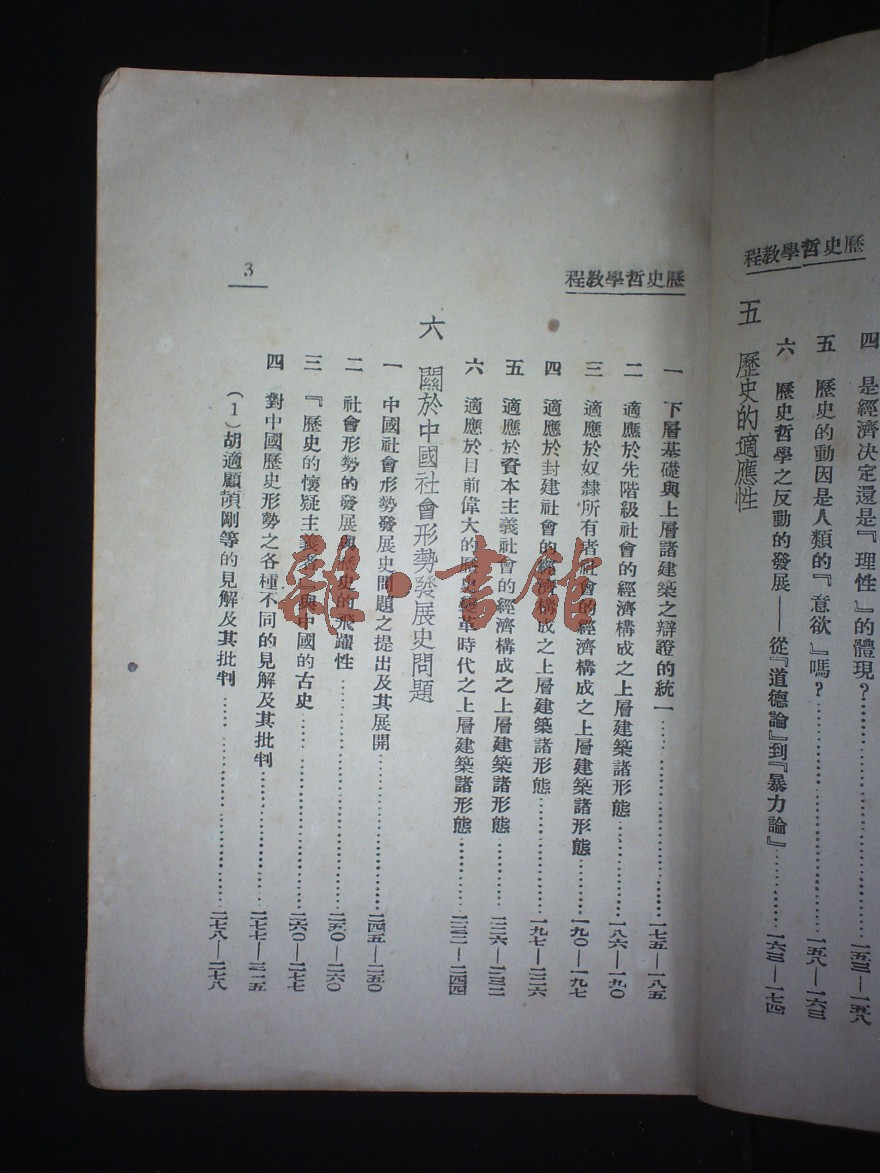 歷史哲學教程
四 是經濟決定還是『理性』的體現？……一五三—一五八
五 歷史的動因是人類的『意欲』嗎？……一五八—一六三
六 歷史哲學之反動的發展——從『道德論』到『暴力論』……一六三—一七四
五 歷史的適應性
歷史哲學教程
一 下層基礎與上層諸建築之辯證的統一……一七五—一八五
二 適應於先階級社會的經濟構成之上層建築諸形態……一八六—一九〇
三 適應於奴隸所有者社會的經濟構成之上層建築諸形態……一九〇—一九七
四 適應於封建社會的經濟構成之上層建築諸形態……一九七—二二六
五 適應於資本主義社會的經濟構成之上層建築諸形態……二二六—二三二
六 適應於目前偉大的歷史變革時代之上層建築諸形態……二三二—二四四
六 關於中國社會形勢發展史問題
一 中國社會形勢發展史問題之提出及其展開……二四五—二五〇
二 社會形勢的發展與歷史的飛躍性……二五〇—二六〇
三 『歷史的懷疑主義者』與中國的古史……二六〇—二七七
四 對中國歷史形勢之各種不同的見解及其批判……二七七—三一五
（1）胡適顧頡剛等的見解及其批判……二七八—二七八
3
雜·書館